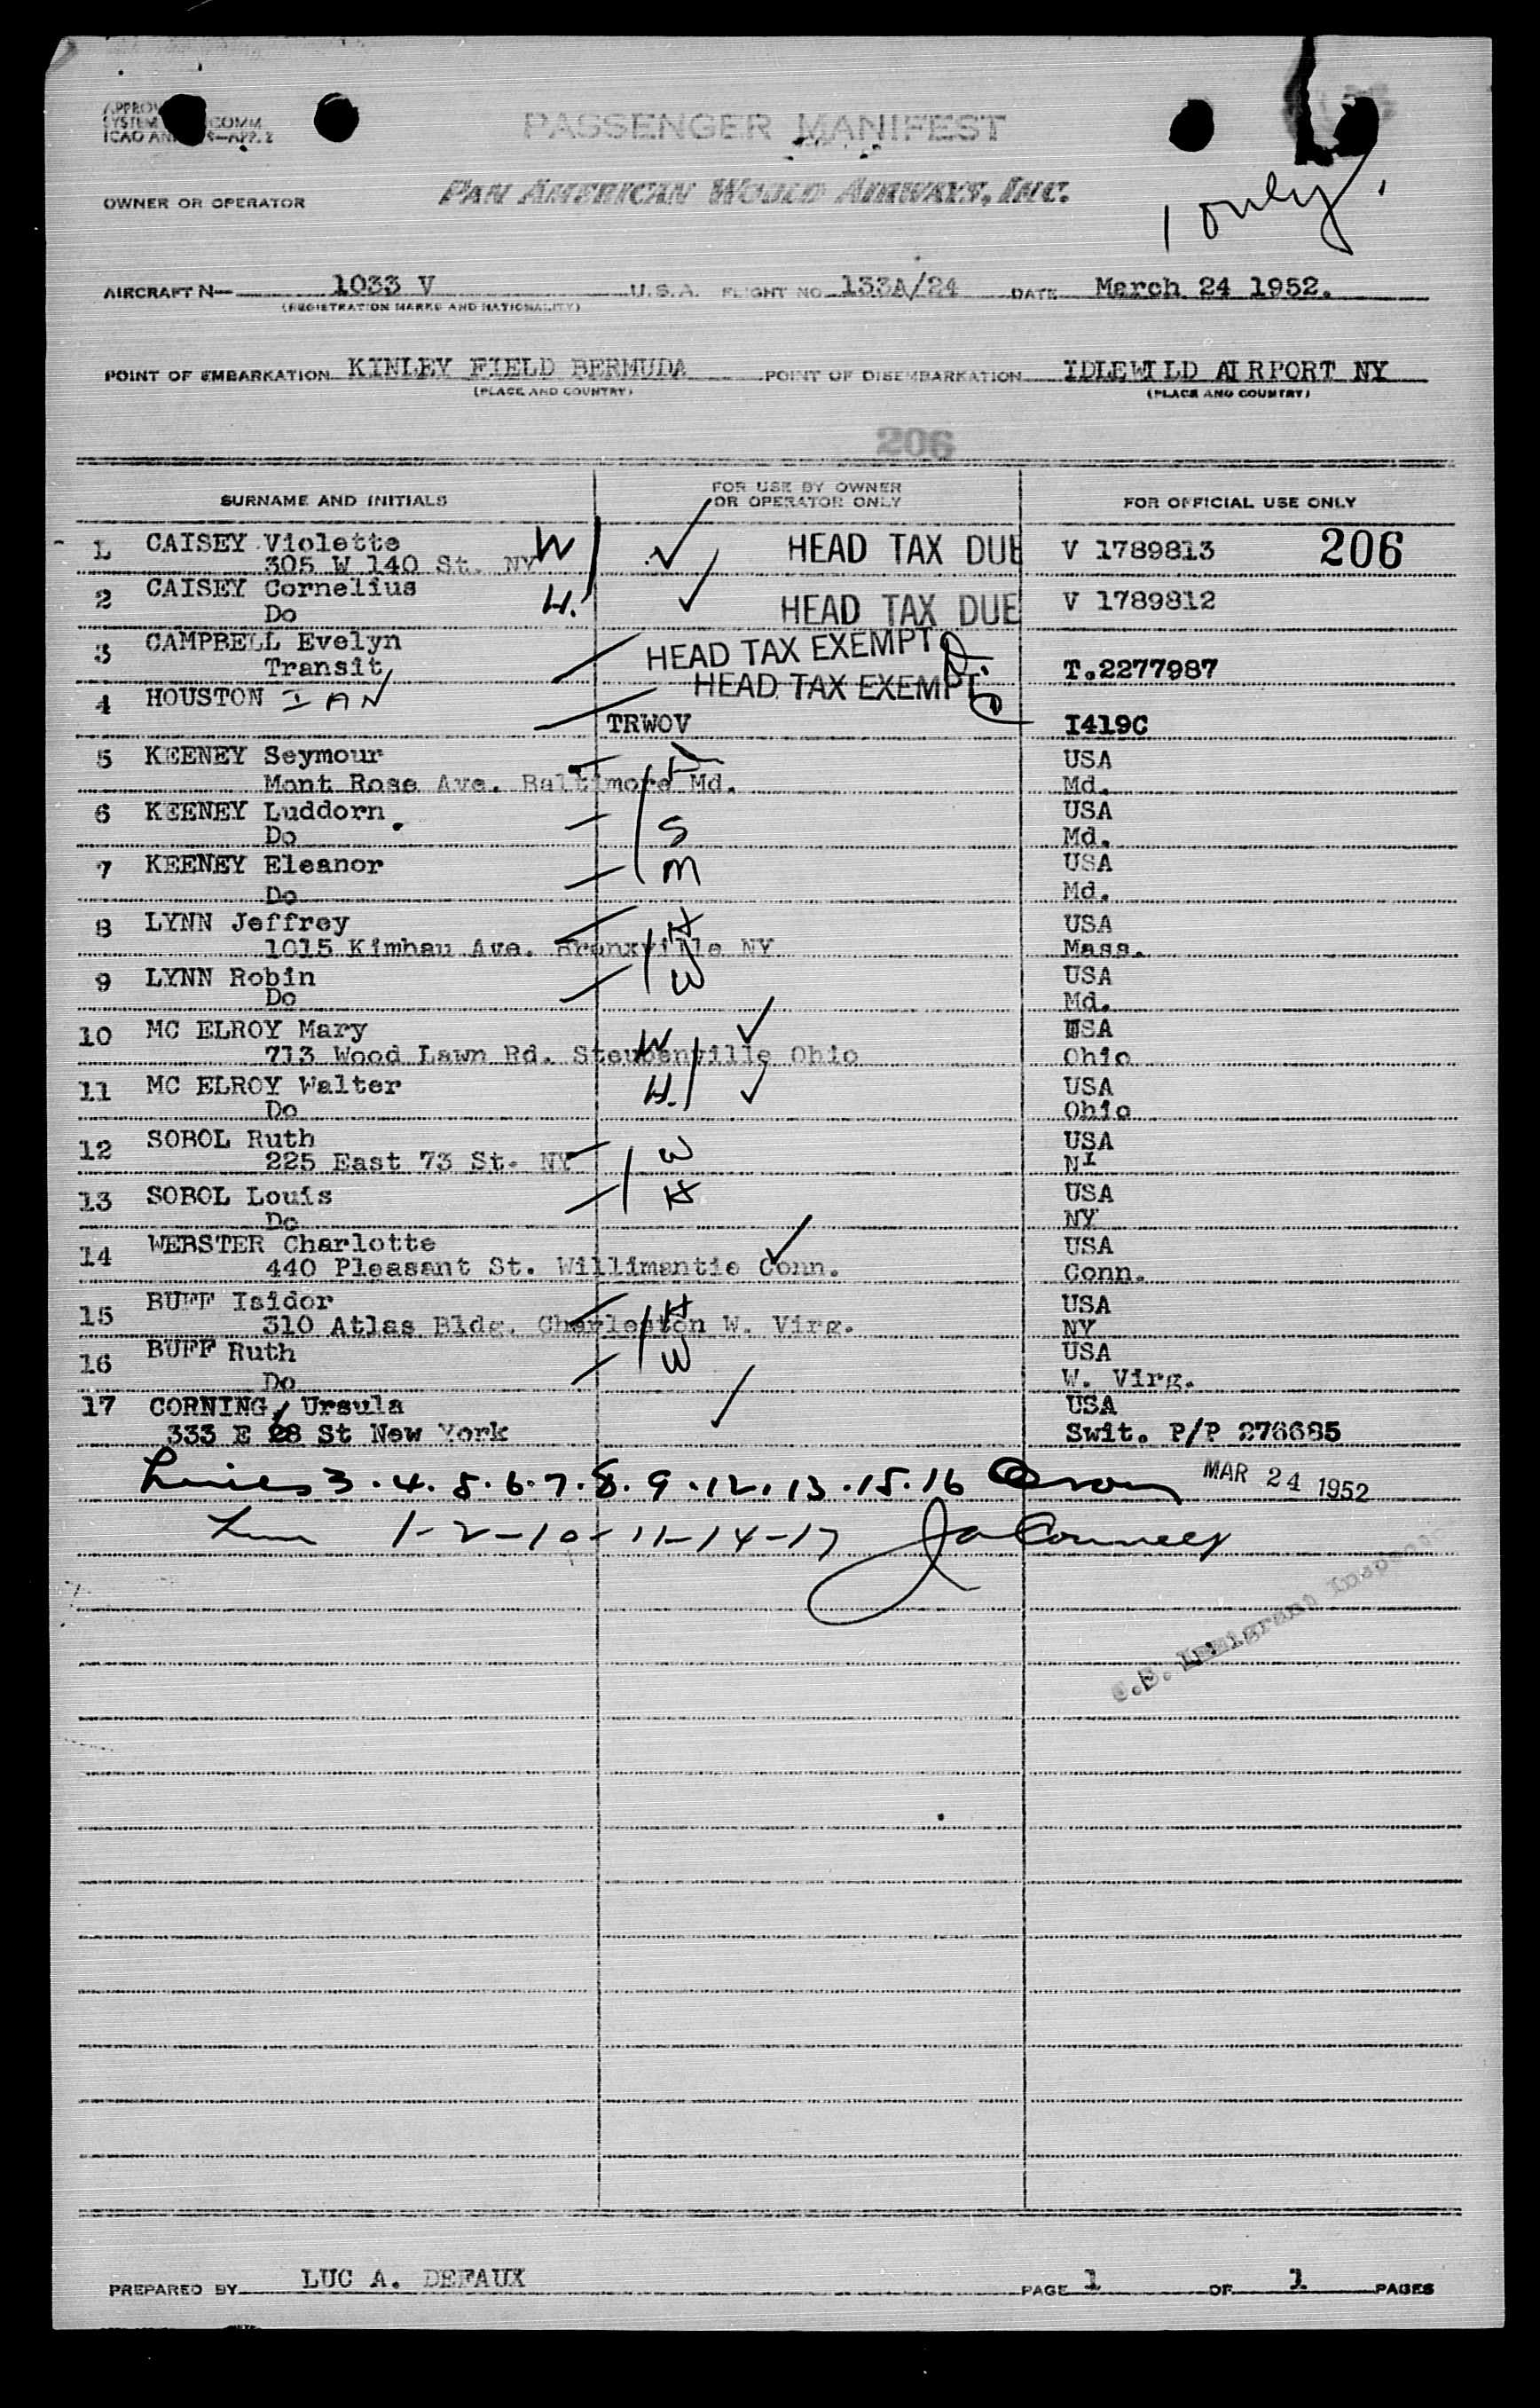 PASSENGER MANIFEST
PAN AMERICAN WORLD AIRWAYS, INC.
OWNER OR OPERATOR
1 only.
AIRCRAFT N— 1033 V U.S.A. FLIGHT NO. 133A/24 DATE March 24 1952.
(REGISTRATION MARKS AND NATIONALITY)
POINT OF EMBARKATION KINLEY FIELD BERMUDA POINT OF DISEMBARKATION IDLEWILD AIRPORT NY
(PLACE AND COUNTRY) (PLACE AND COUNTRY)
206
SURNAME AND INITIALS FOR USE BY OWNER OR OPERATOR ONLY FOR OFFICIAL USE ONLY
1 CAISEY Violette W HEAD TAX DUE V 1789813 206
305 W 140 St. NY
2 CAISEY Cornelius H. HEAD TAX DUE V 1789812
Do
3 CAMPBELL Evelyn HEAD TAX EXEMPT
Transit T.2277987
4 HOUSTON IAN HEAD TAX EXEMPT
TRWOV I419C
5 KEENEY Seymour USA
Mont Rose Ave. Baltimore Md. Md.
6 KEENEY Luddorn S USA
Do Md.
7 KEENEY Eleanor M USA
Do Md.
8 LYNN Jeffrey H USA
1015 Kimhau Ave. Bronxville NY Mass.
9 LYNN Robin W USA
Do Md.
10 MC ELROY Mary W USA
713 Wood Lawn Rd. Steubenville Ohio Ohio
11 MC ELROY Walter H. USA
Do Ohio
12 SOBOL Ruth W USA
225 East 73 St. NY NY
13 SOBOL Louis H USA
Do NY
14 WEBSTER Charlotte USA
440 Pleasant St. Willimantic Conn. Conn.
15 BUFF Isidor H USA
310 Atlas Bldg. Charleston W. Virg. NY
16 BUFF Ruth W USA
Do W. Virg.
17 CORNING, Ursula USA
333 E 28 St New York Swit. P/P 276685
Lines 3.4.5.6.7.8.9.12.13.15.16 MAR 24 1952
1-2-10-11-14-17
U.S. Immigrant Inspector
PREPARED BY LUC A. DEFAUX PAGE 1 OF 1 PAGES